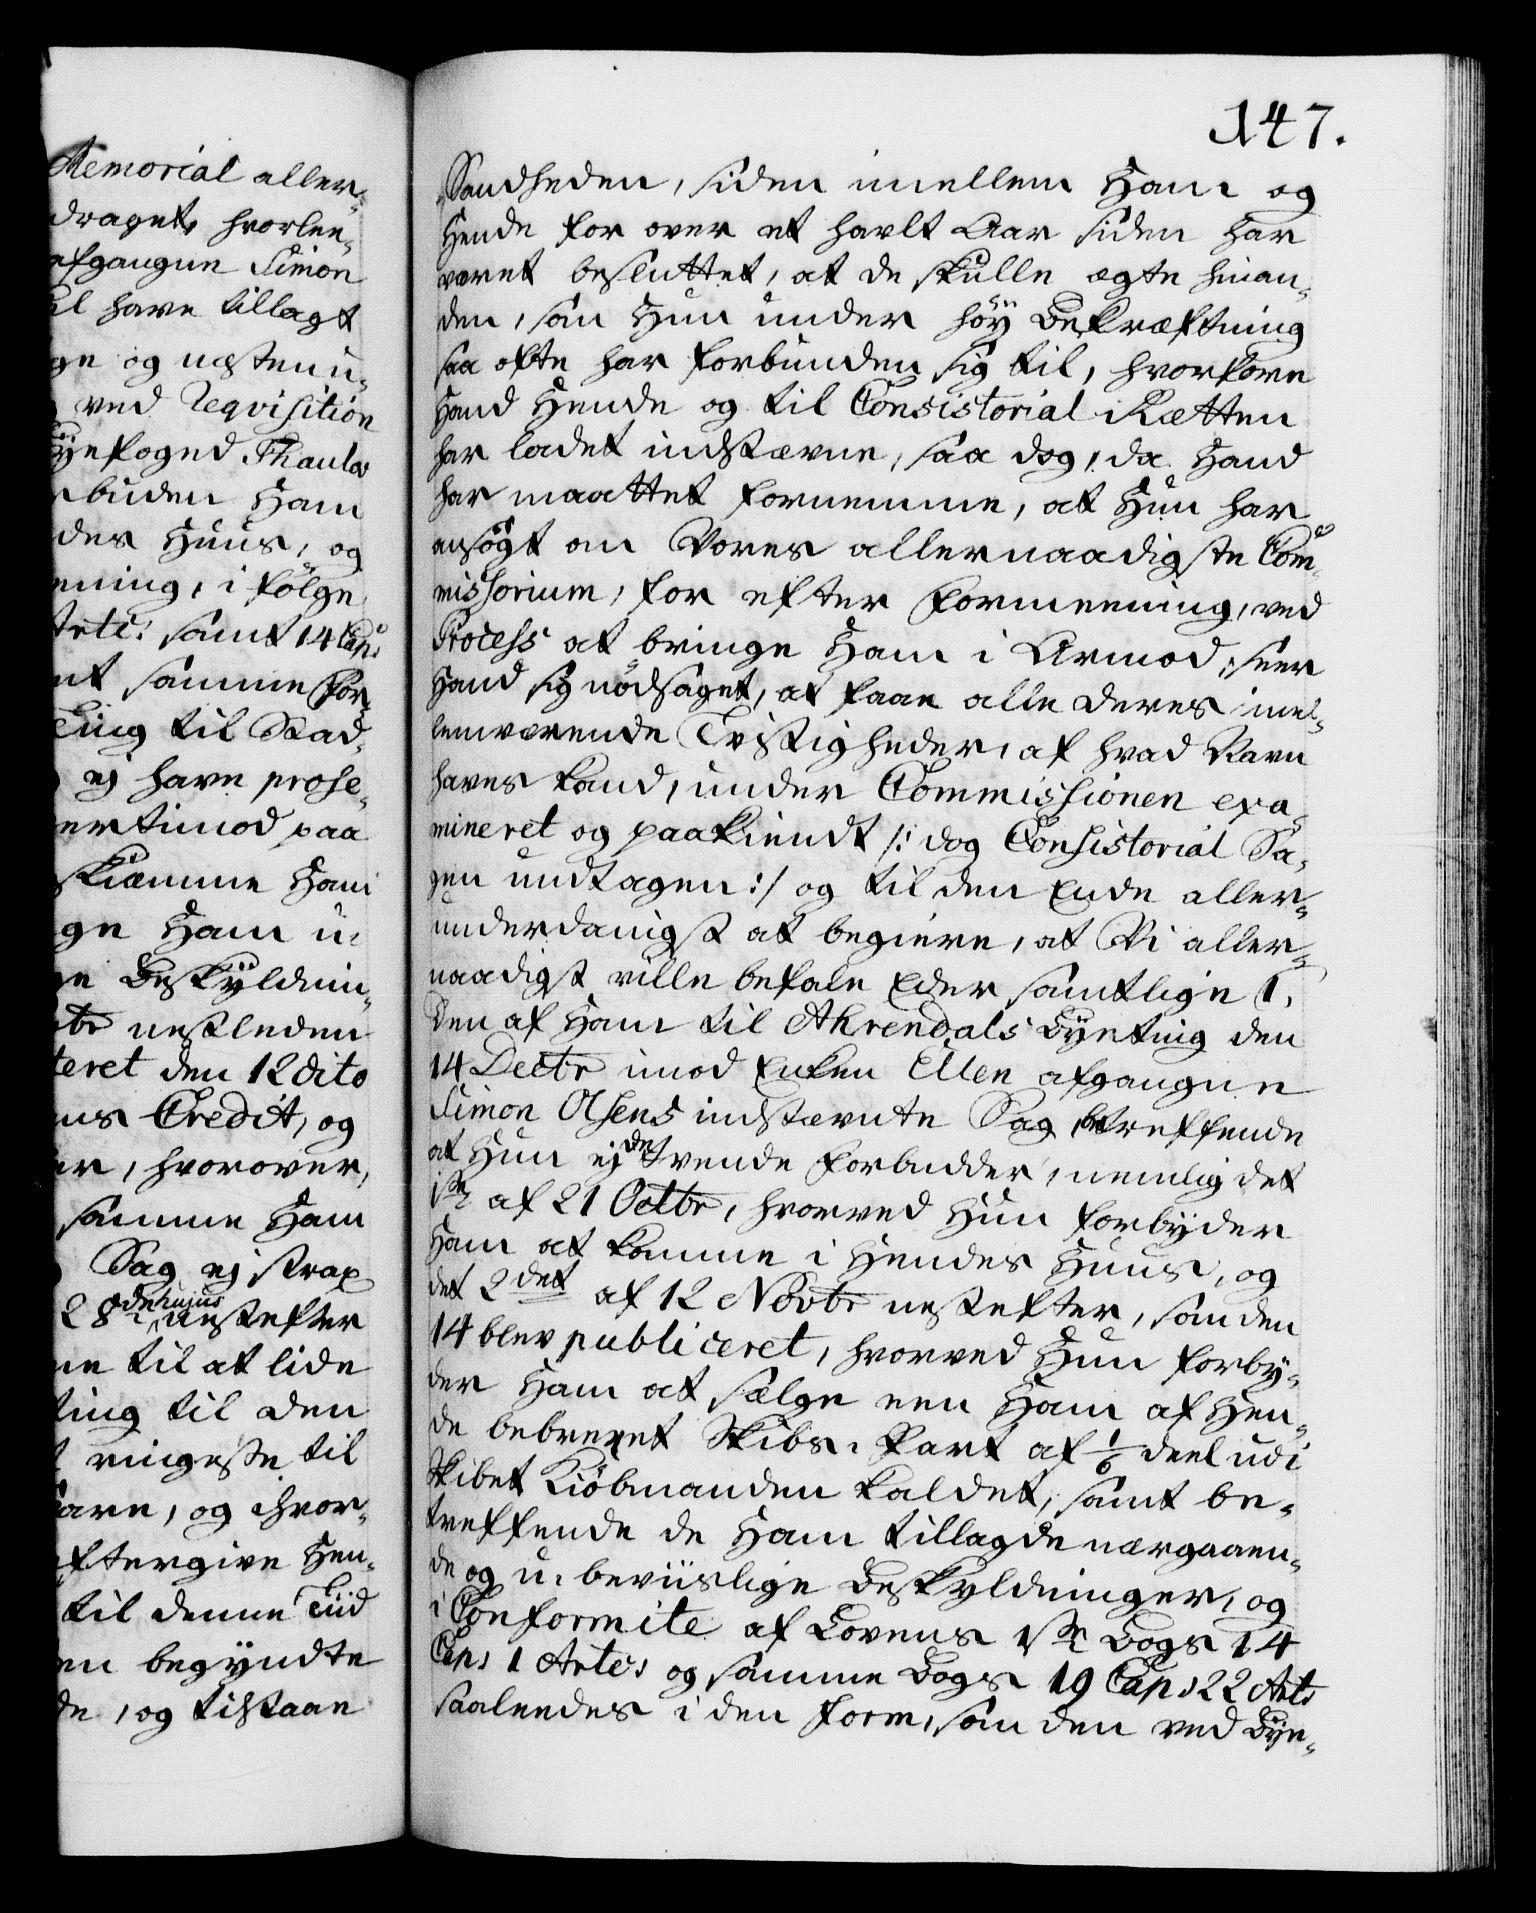 Memorial aller-
draget, hvorlee-
afgangne Simon
al have tillagt
ge og nesten u-
ved Reqvisition
Byefoged Thaulos
rbuden Ham
des Huus, og
ening, i følge
Artc: samt 14 Cap:
nt samme For
Ting til Stad-
ej have prose-
ertimod paa
skiemme Ham
ge Ham u-
ge Beskyldnin-
br nestleden
teret den 12 dito
ens Credit, og
er, hvorover,
samme Ham
Sag ej strax
28de hujus nestefter
ne til at lide
ting til den
ringeste til
vare, og hvor-
eftergive Hen-
til denne Tiid
en begyndte
de, og tilstaae
147.
Sandheden, siden imellem Ham og
Hende for over et halvt Aar siden har
været besluttet, at de skulle ægte hinan-
den, som Hun under høy Bekræftning
saa ofte har forbunden sig til, hvorfore
Hand Hende og til Consistorial Retten
har ladet indstævne, saa dog, da Hand
har maattet fornemme, at Hun har
ansøgt om Vores allernaadigste Com-
missorium, for efter Formeening, ved
Process at bringe Ham i Armod, seer
Hand sig nødsaget, at faae alle deres imel-
lemværende Tvistigheder, af hvad Navn
haves kand, under Commissionen exa-
mineret og paakiendt /: dog Consistorial Sa-
gen undtagen :/ og til den Ende aller-
underdanigst at begiere, at Vi aller-
naadigst ville befale Eder samtlige 1,
Den af Ham til Ahrendals Byeting den
14 Decbr imod Enken Ellen afgangne
Simon Olsens indstævnte Sag betreffende
at Hun ej de tvende Forbudder, nemlig det
1ste af 21 Octbr, hvorved Hun forbyder
Ham at komme i Hendes Huus, og
det 2det af 12 Novbr nestefter, som den
14 blev publiceret, hvorved Hun forby-
der Ham at sælge een Ham af Hen-
de bebrevet Skibs-Part af 1/6 deel udi
Skibet Kiøbmanden kaldet, samt be-
treffende de Ham tillagde nærgaaen-
de og u-beviislige Beskyldninger, og
i Conformite af Lovens 1ste Bogs 14
Cap: 1 Artc: og samme Bogs 19 Cap: 22 Art:
saaledes i den Form, som den ved Bye-